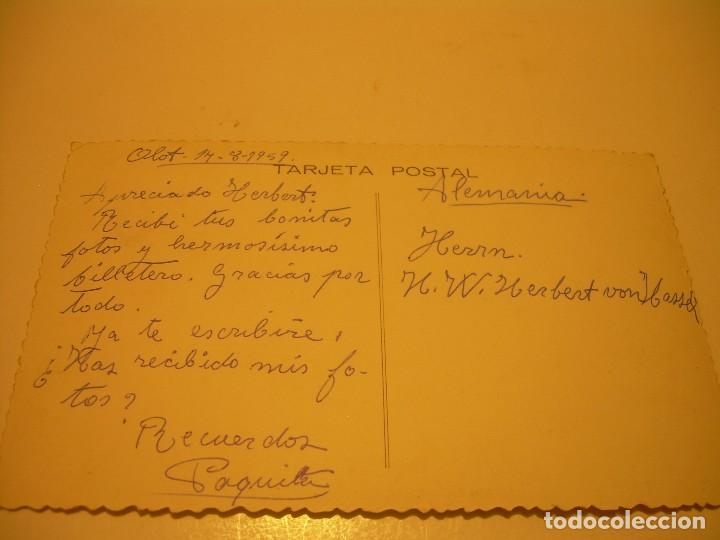 Olot-14-8-1959.
TARJETA POSTAL
Apreciado Herbert:
Recibí tus bonitas
fotos y hermosísimo
billetero. Gracias por
todo.
Ya te escribiré,
¿Has recibido mis fo-
tos?
Recuerdos
Paquita
Alemania.
Herrn.
H. W. Herbert von Hassel
todocoleccion.net